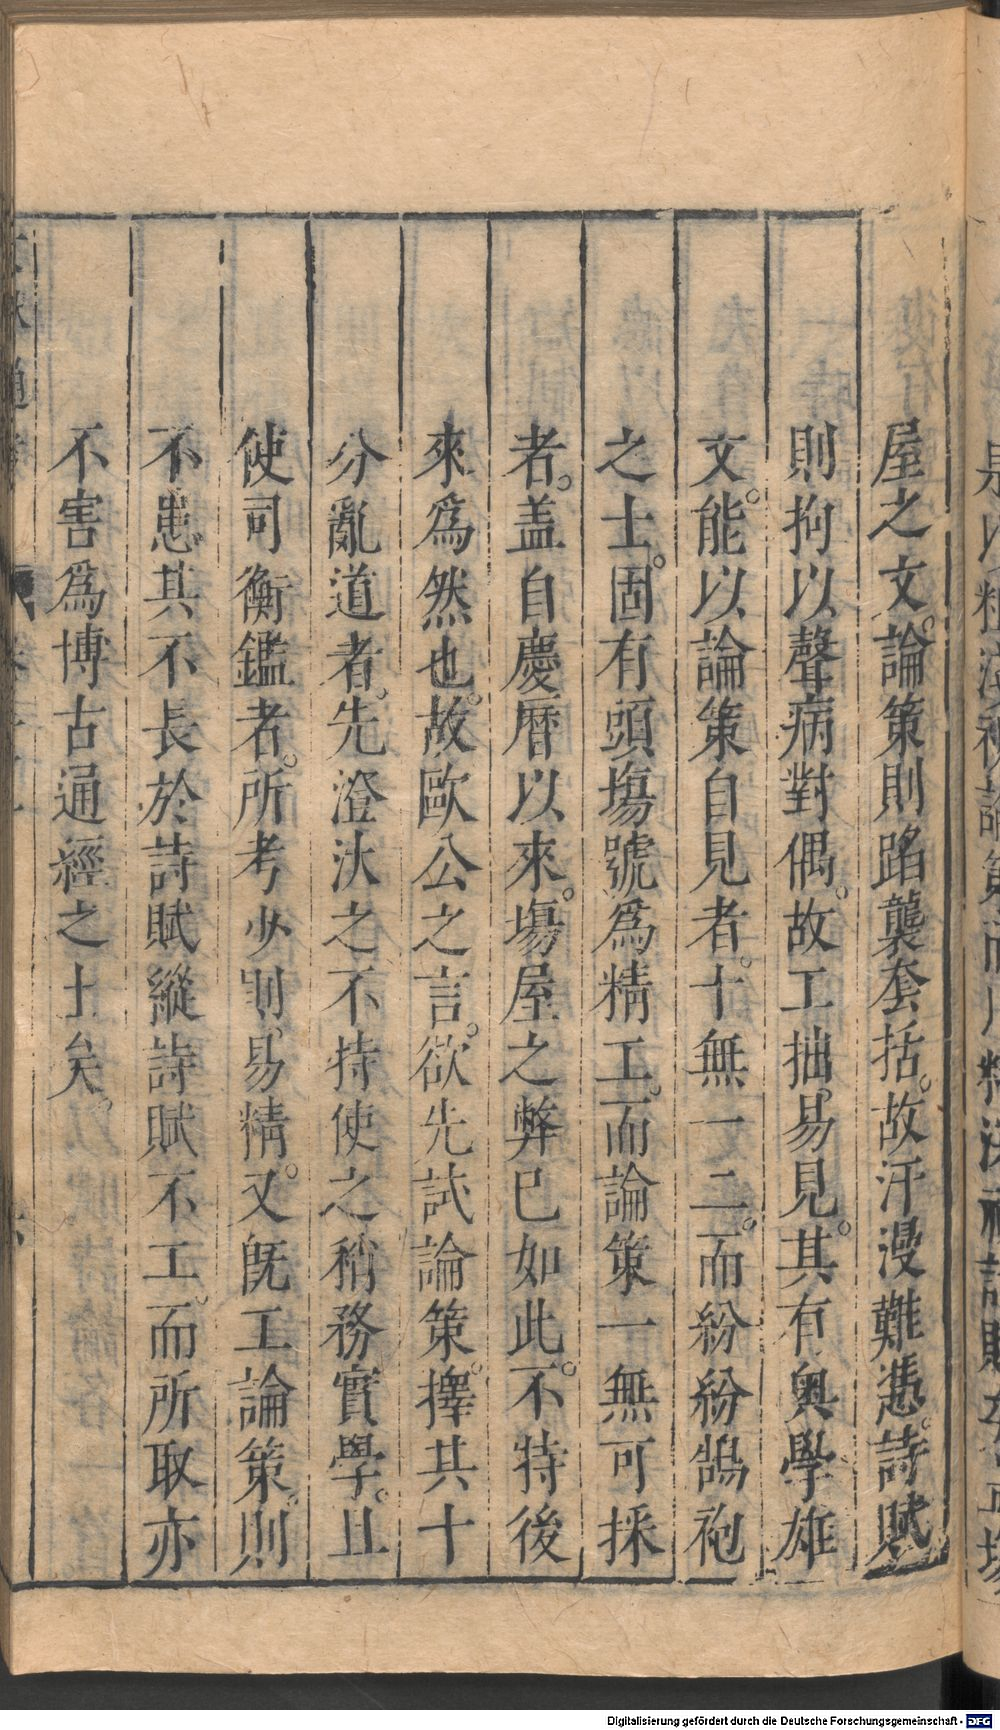 屋之文。論策則蹈襲套括。故汗漫難憑。詩賦
則拘以聲病對偶。故工拙易見。其有奧學雄
文。能以論策自見者。十無一二。而紛紛鵠袍
之士。固有頭塲號爲精工。而論策一無可採
者。盖自慶曆以來。塲屋之弊已如此。不特後
來爲然也。故歐公之言。欲先試論策。擇其十
分亂道者。先澄汰之。不特使之稍務實學。且
使司衡鑑者。所考少則易精。又旣工論策。則
不患其不長於詩賦縱詩賦不工。而所取亦
不害爲博古通經之士矣。
Digitalisierung gefördert durch die Deutsche Forschungsgemeinschaft - DFG